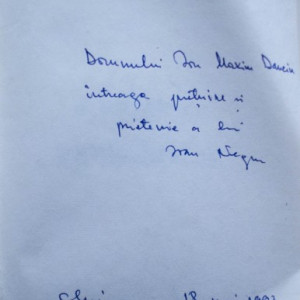 Domnului Ion Maxim Danciu
întreaga prețuire și
prietenie a lui
Ioan Negru